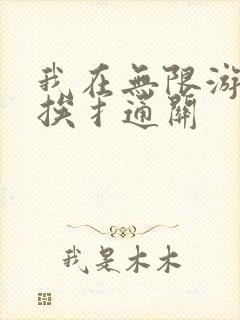 我在無限游
挨扌通關
我是木木